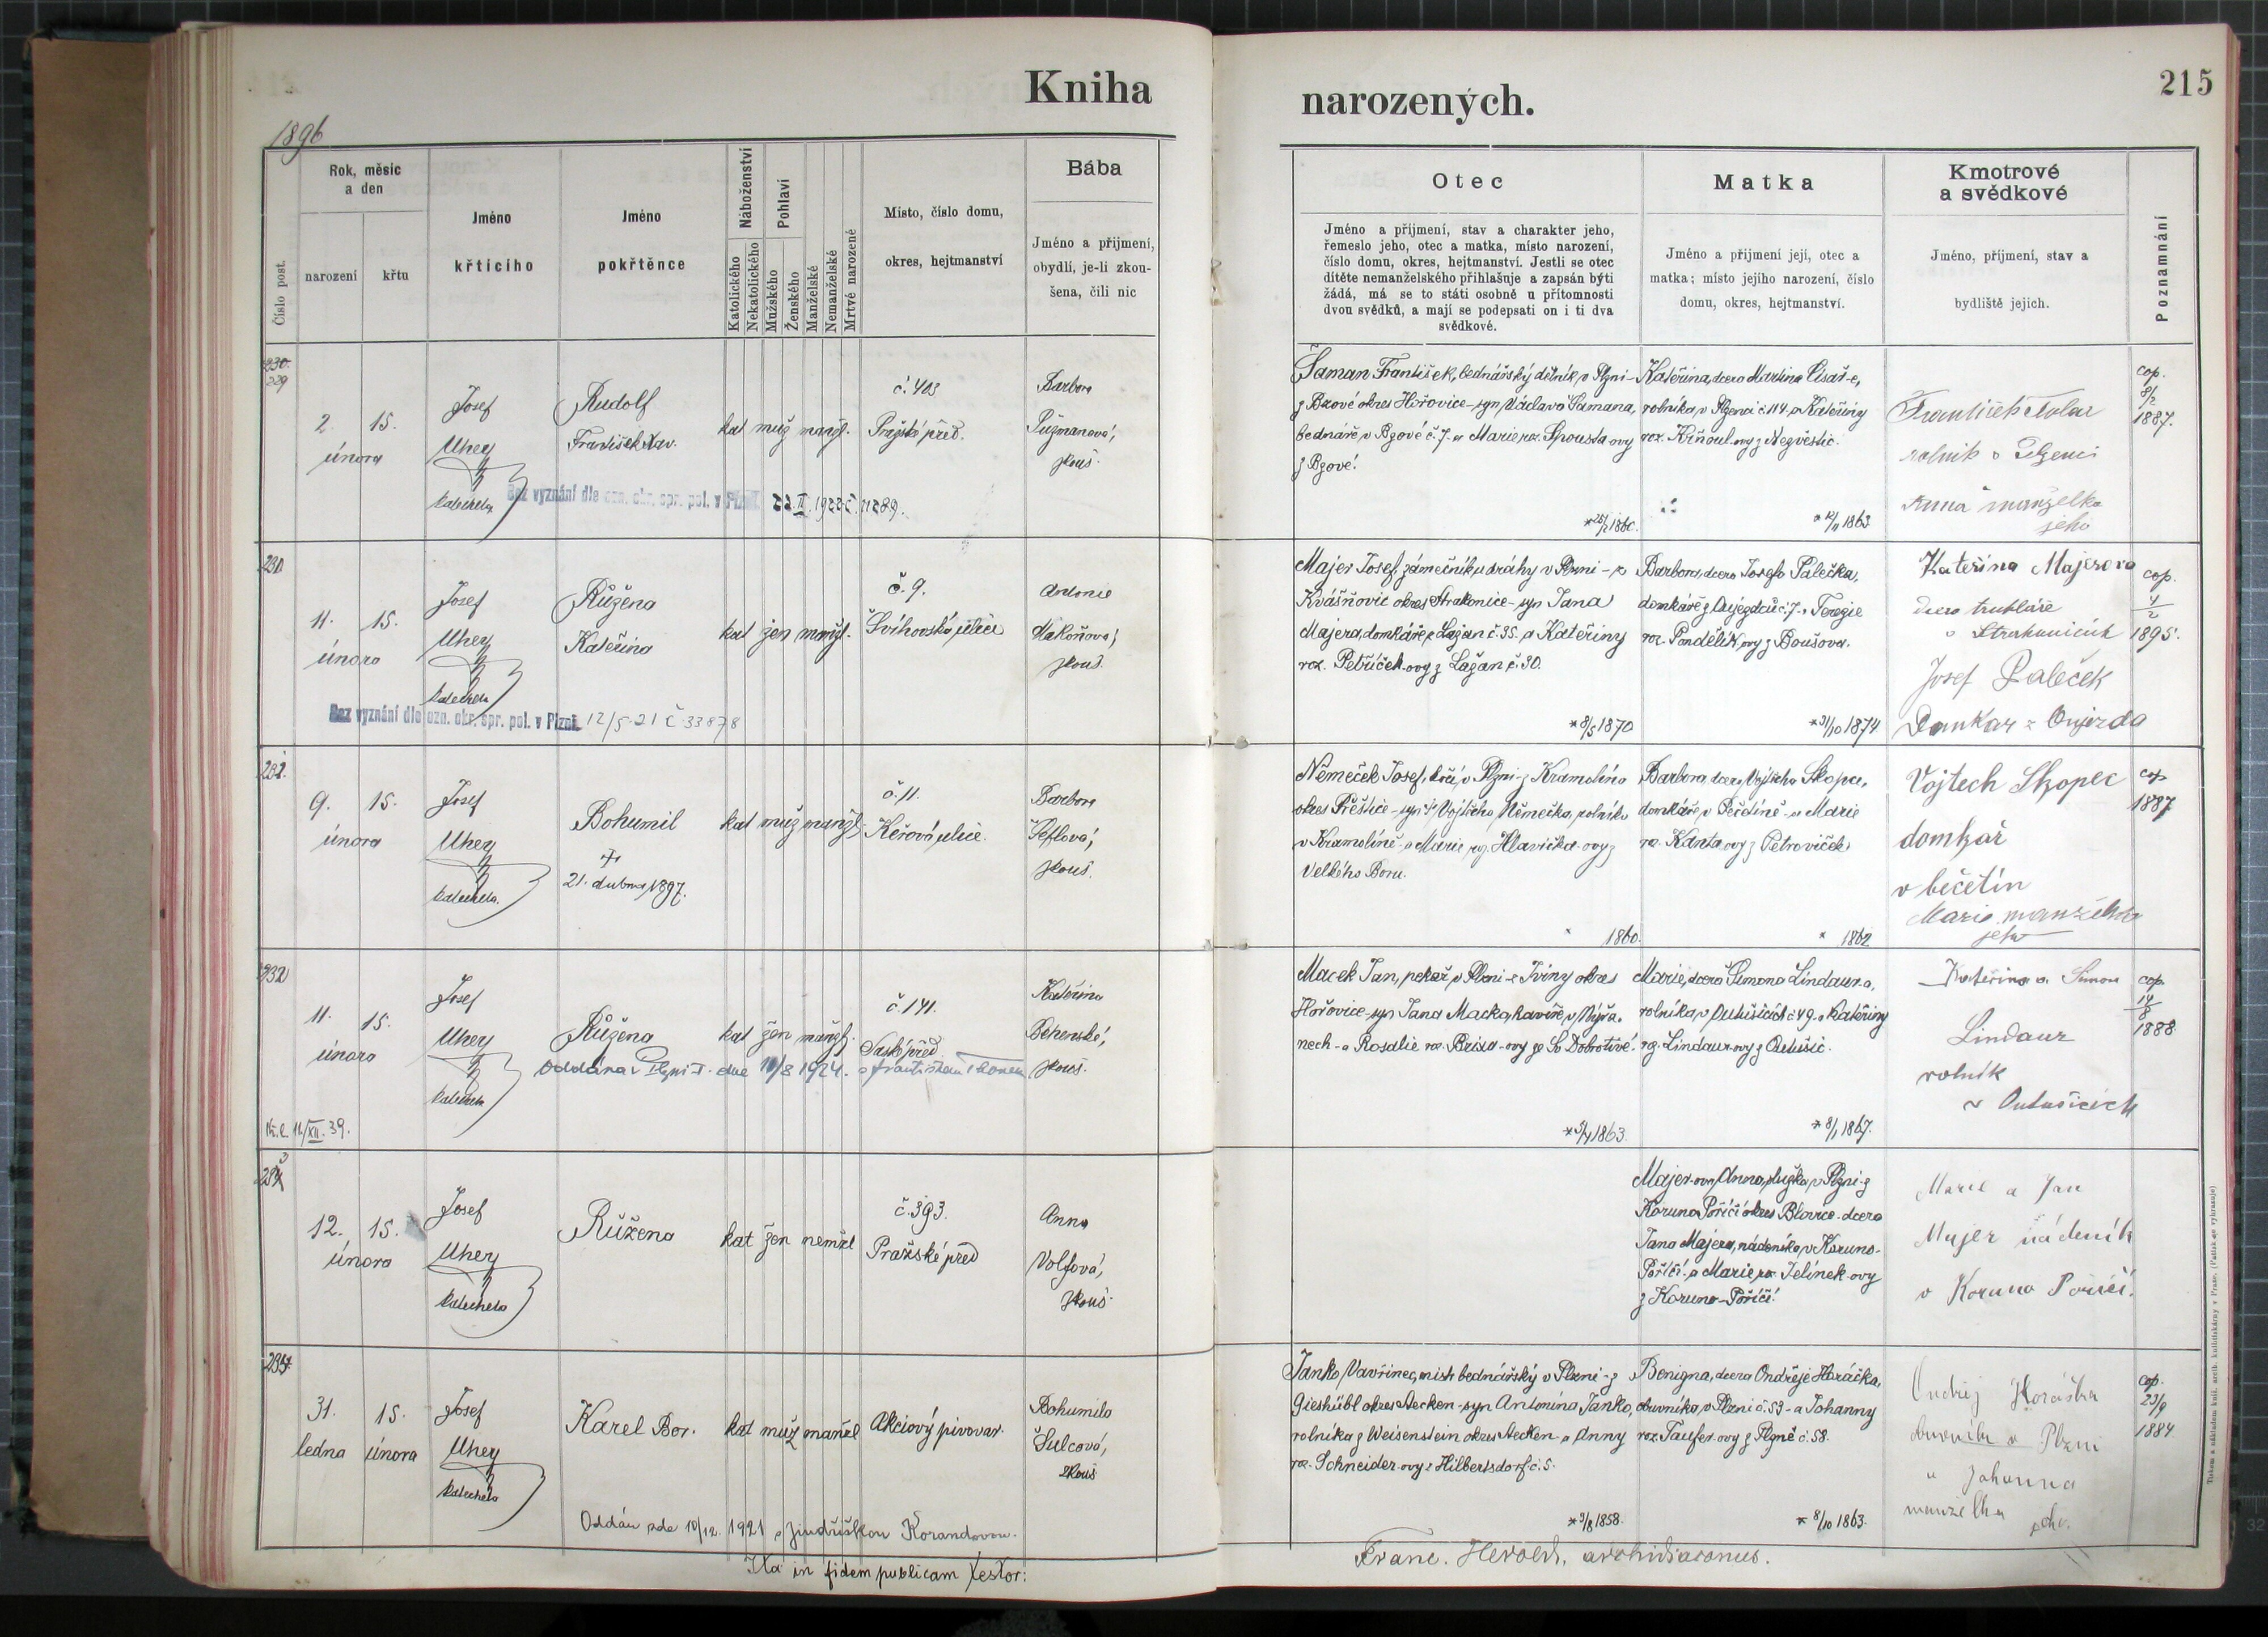 Kniha
narozených.
215
1896
Číslo post.
Rok, měsíc
a den
narození
křtu
Jméno
křtícího
Jméno
pokřtěnce
Náboženství
Katolického
Nekatolického
Pohlaví
Mužského
Ženského
Manželské
Nemanželské
Mrtvě narozené
Místo, číslo domu,
okres, hejtmanství
Bába
Jméno a příjmení,
obydlí, je-li zkou-
šena, čili nic
Otec
Jméno a příjmení, stav a charakter jeho,
řemeslo jeho, otec a matka, místo narození,
číslo domu, okres, hejtmanství. Jestli se otec
dítěte nemanželského přihlašuje a zapsán býti
žádá, má se to státi osobně u přítomnosti
dvou svědků, a mají se podepsati on i ti dva
svědkové.
Matka
Jméno a příjmení její, otec a
matka; místo jejího narození, číslo
domu, okres, hejtmanství.
Kmotrové
a svědkové
Jméno, příjmení, stav a
bydliště jejich.
Poznamnání
230.
229
2. 15.
února
Josef
Uhey
katecheta
Rudolf
František Xav.
kat muž manžl.
č. 403
Pražské před.
Barbora
Pužmanová,
zkouš.
Bez vyznání dle ozn. okr. spr. pol. v Plzni 22.II.1922 č. 11289.
Šaman František, bednářský dělník v Plzni -
z Bzové okres Hořovice - syn Václava Šamana,
bednáře v Bzové č. 7. a Marie roz. Spousta-ovy
z Bzové.
Kateřina, dcera Martina Císař-e,
rolníka v Plzenci č. 114, a Kateřiny
roz. Křňoul-ovy z Nezvěstic.
1860.
1863
František
rolník v Plzenci
Anna manželka
jeho
cop.
8/2
1887.
230
11. 15.
února
Josef
Uhey
katecheta
Růžena
Kateřina
kat žen manžl.
č. 9.
Švihovská ulice
Antonie
Makoňová,
zkouš.
Bez vyznání dle ozn. okr. spr. pol. v Plzni 12/5. 21 č. 33878
Majer Josef, zámečník u dráhy v Plzni - z
Kvášňovic okres Strakonice - syn Jana
Majera, domkáře z Lažan č. 35. a Kateřiny
roz. Petříček-ovy z Lažan č. 30.
Barbora, dcera Josefa Palečka,
domkáře z Oujezdu č. 7. a Terezie
roz. Pondělík-ovy z Boušova.
*8/5 1870
*31/10 1874
Kateřina Majerova
dcera truhláře
v Strakonicích
Josef Paleček
Domkar z Oujezda
cop.
4/2
1895.
231.
9. 15.
února
Josef
Uhey
katecheta.
Bohumil
†
21. dubna 1897.
kat muž manžl.
č. 11.
Keřová ulice.
Barbora
Šeflová,
zkouš.
Němeček Josef, kočí v Plzni - z Kramolína
okres Přeštice - syn † Vojtěcha Němečka, rolníka
v Kramolíně - a Marie roz. Hlavička-ovy z
Velkého Boru.
Barbora, dcera Vojtěcha Skopce,
domkáře v Pečetíně - a Marie
roz. Kanta-ovy z Petroviček
* 1860.
* 1862
Vojtech Skopec
domkař
v bečetín
Marie manželka
jeho
cop
1887
232
11. 15.
února
Josef
Uhey
katecheta
Růžena
kat žen manžl.
č. 141.
Saské před.
Kateřina
Beherská,
zkouš.
Oddána v Plzni I. dne 10/8 1924. s Františkem
11./XII. 39.
Macek Jan, pekař v Plzni - z Tviny okres
Hořovice - syn Jana Macka, havíře v Nýřa-
nech - a Rosalie roz. Brixa-ovy ze Sv. Dobrotivé.
Marie, dcera Šimona Lindaura,
rolníka v Outušicích č. 49. a Kateřiny
roz. Lindaur-ovy z Outušic.
1863.
*8/1 1867.
Kateřina a Šimon
Lindaur
rolník
v Outušicích
cop.
14/8
1888
233
12. 15.
února
Josef
Uhey
katecheta
Růžena
kat žen nemžel
č. 393.
Pražské před
Anna
Volfová,
zkouš.
Majer-ova Anna, služka v Plzni - z
Koruno-Poříčí okres Blovice - dcera
Jana Majera, nádeníka v Koruno-
Poříčí - a Marie roz. Jelínek-ovy
z Koruno-Poříčí.
Marie a Jan
Majer nádeník
v Koruno Poříčí.
234.
31. 15.
ledna února
Josef
Uhey
katecheta
Karel Bor.
kat muž manžel
Akciový pivovar.
Bohumila
Šulcová,
zkouš
Oddán zde 10/12. 1921 s Jindřiškou Korandovou.
Janko Vavřinec, mistr bednářský v Plzni - z
Gieshübl okres Aecken - syn Antonína Janko,
rolníka z Weisenstein okres Aecken - a Anny
roz. Schneider-ovy z Hilbertsdorf č. 5.
Benigna, dcera Ondřeje Horáčka,
obuvníka v Plzni č. 53 - a Johanny
roz. Taufer-ovy z Plzně č. 58.
*9/8 1858.
* 8/10 1863.
Ondřej Horáčka
obuvník v Plzni
a Johanna
manželka jeho.
cop.
23/9
1884
Ita in fidem publicam testor:
Franc. Herold, archidiaconus.